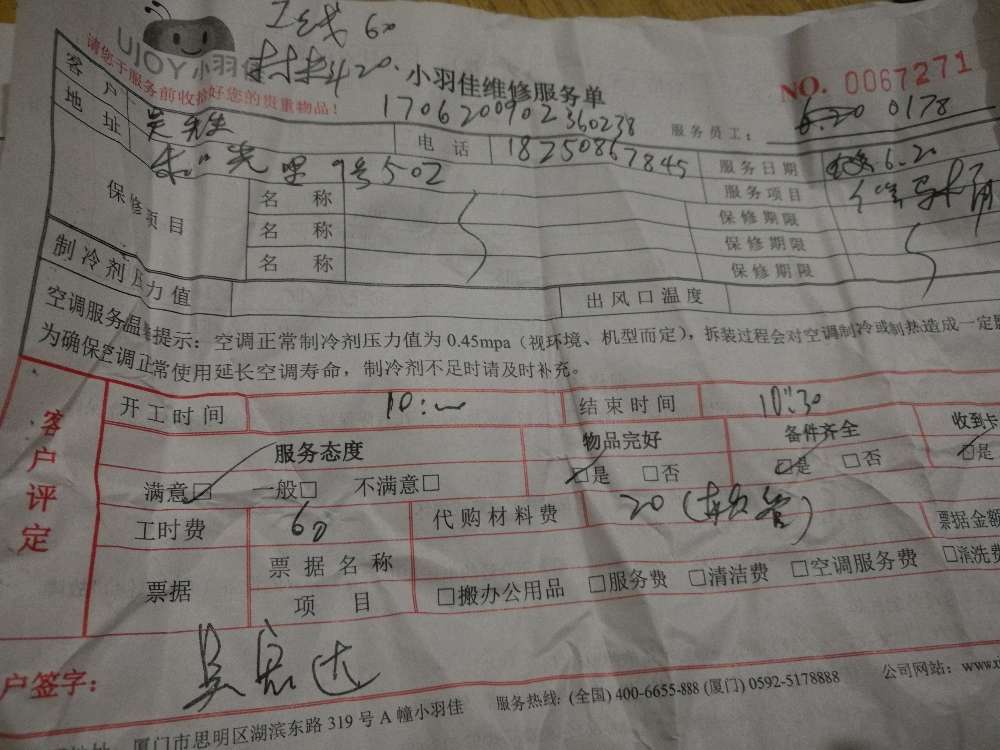 工线 60
材料20.
UJOY小羽佳
小羽佳维修服务单
NO. 0067271
请您于服务前收拾好您的贵重物品!
170620090236 0238
服务员工: 0178
客户 吴先生
电话 18250867845
服务日期 6.20
地址 9号502
服务项目
保修项目
名称
保修期限
名称
保修期限
名称
保修期限
制冷剂压力值
出风口温度
空调服务温馨提示:空调正常制冷剂压力值为0.45mpa(视环境、机型而定),拆装过程会对空调制冷或制热造成一定
为确保空调正常使用延长空调寿命,制冷剂不足时请及时补充。
客户评定
开工时间 10:
结束时间 10:30
服务态度
物品完好
备件齐全
收到卡
满意☑ 一般□ 不满意□
☑是 □否
☑是 □否
☑是
工时费 60
代购材料费 20(软管)
票据金额
票据
票据名称
项目
□搬办公用品 □服务费 □清洁费 □空调服务费 □清洗费
户签字:
吴宏达
厦门市思明区湖滨东路319号A幢小羽佳
服务热线:(全国)400-6655-888(厦门)0592-5178888
公司网站:www.